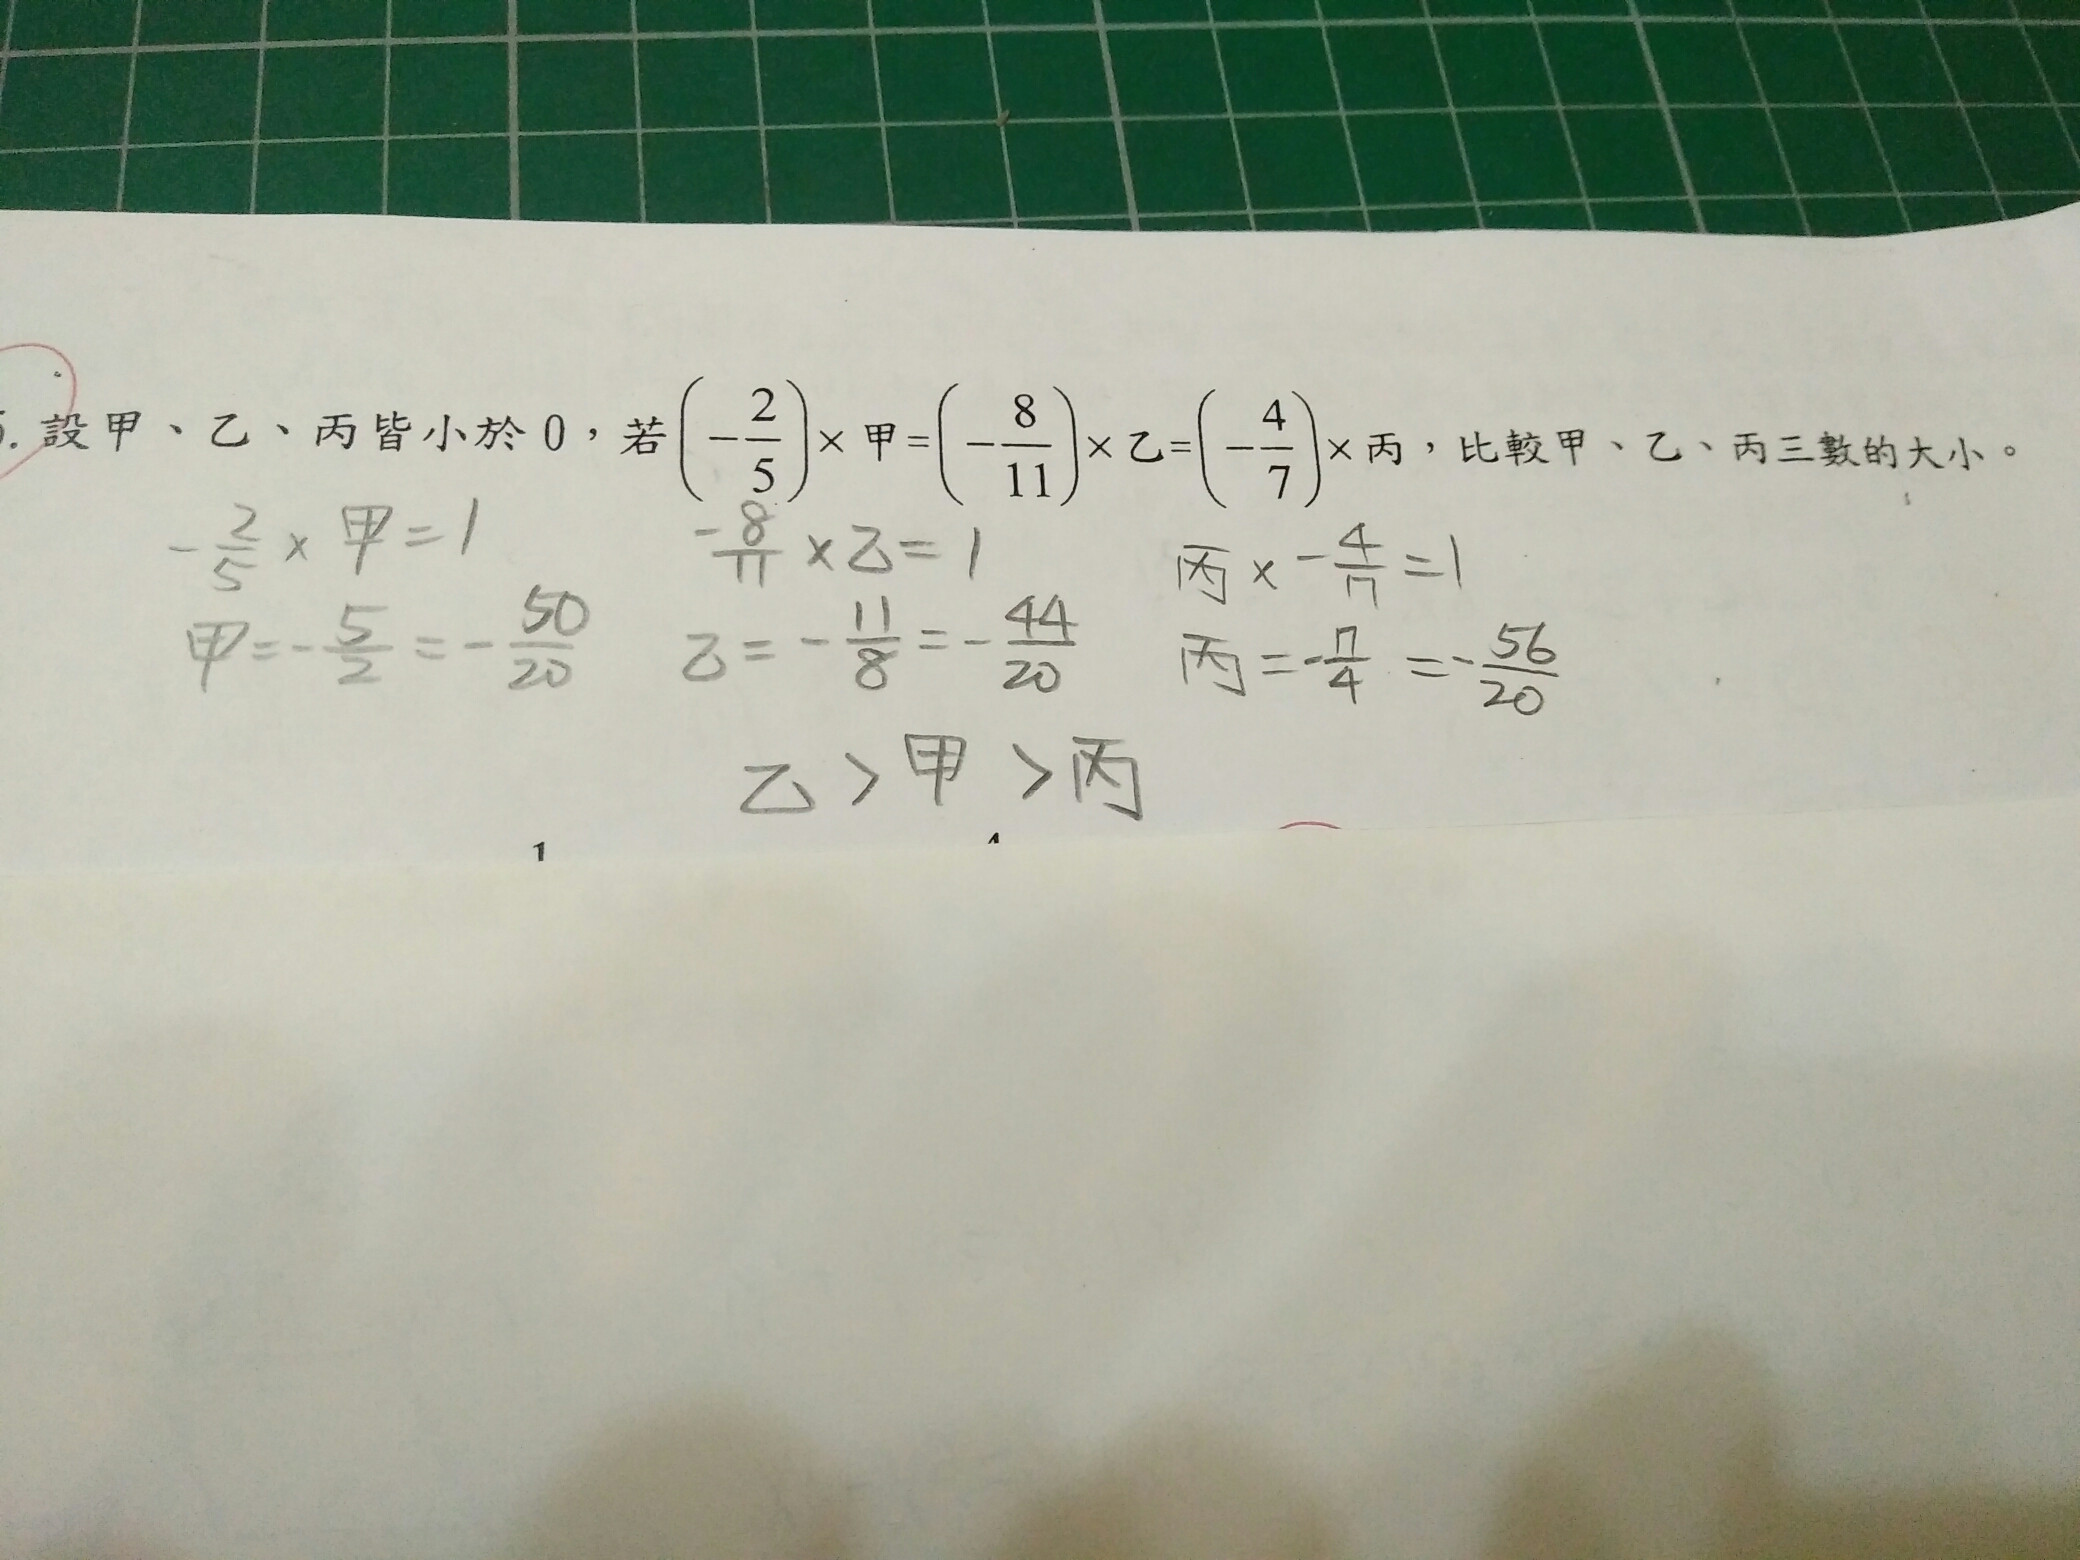 . 設甲、乙、丙皆小於 0，若(-2/5)×甲=(-8/11)×乙=(-4/7)×丙，比較甲、乙、丙三數的大小。
-2/5 × 甲 = 1   -8/11 × 乙 = 1   丙 × -4/7 = 1
甲 = -5/2 = -50/20   乙 = -11/8 = -44/20   丙 = -7/4 = -56/20
乙 > 甲 > 丙
1